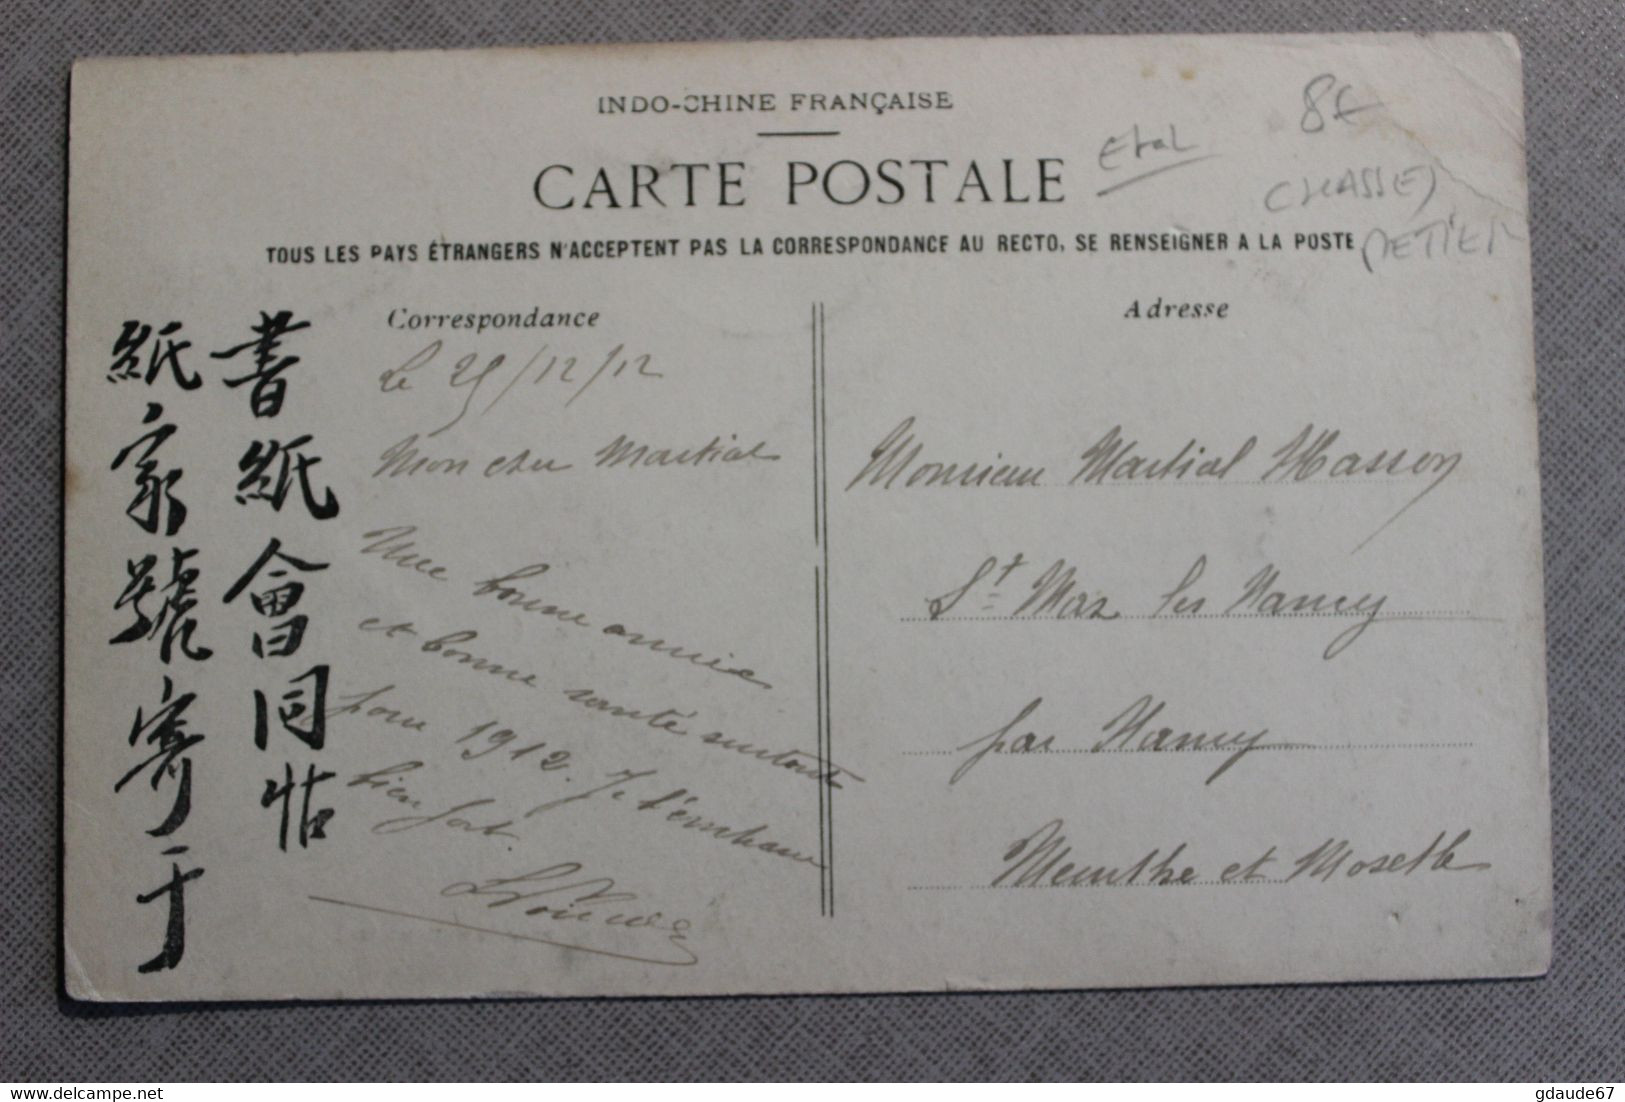 INDO-CHINE FRANÇAISE
CARTE POSTALE
Etat
8€
CHASSE)
METIER
TOUS LES PAYS ÉTRANGERS N'ACCEPTENT PAS LA CORRESPONDANCE AU RECTO, SE RENSEIGNER A LA POSTE
Correspondance
Adresse
書紙會同帖
紙家號寄于
Le 25/12/12
Mon cher Martial
Une bonne année
et bonne santé surtout
pour 1912. Je t'embrasse
bien fort.
Monsieur Martial Masson
St Max les Nancy
par Nancy
Meurthe et Moselle
gdaude67